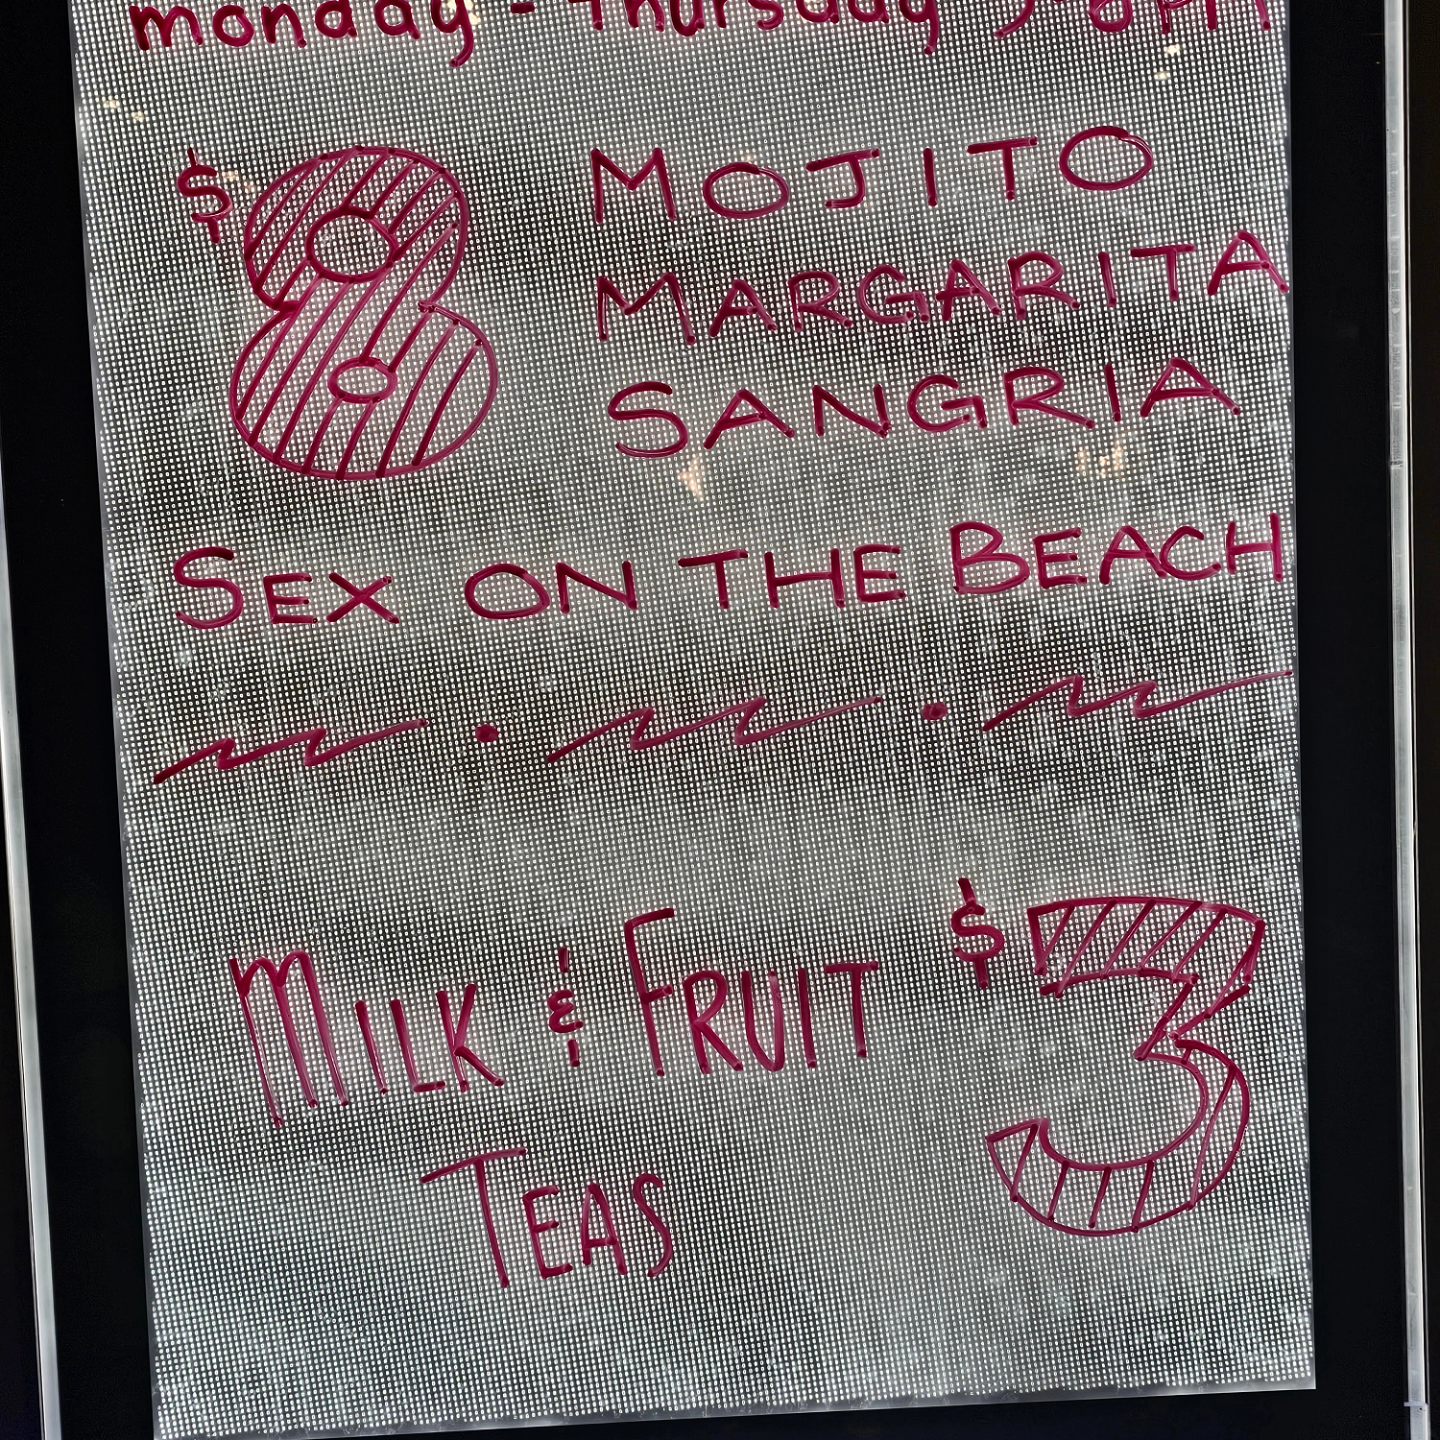 monday - thursday
$8 MOJITO
MARGARITA
SANGRIA
SEX ON THE BEACH
MILK & FRUIT $3
TEAS